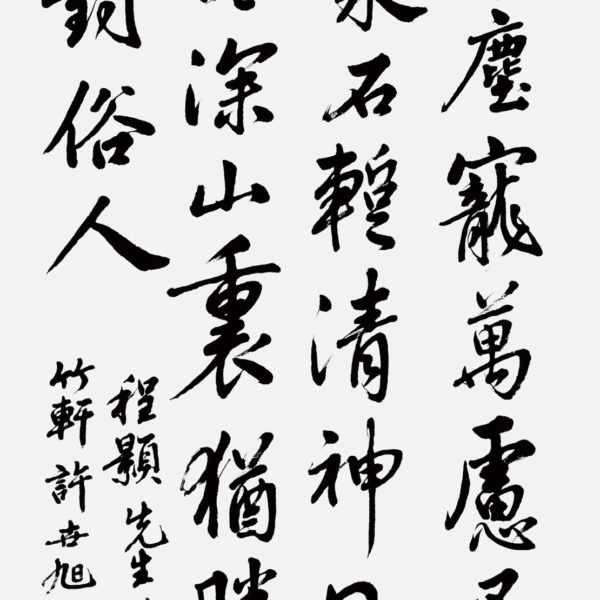 塵寵萬慮
泉石輕清神
深山裏猶勝
對俗人
程顥先生
竹軒許世旭